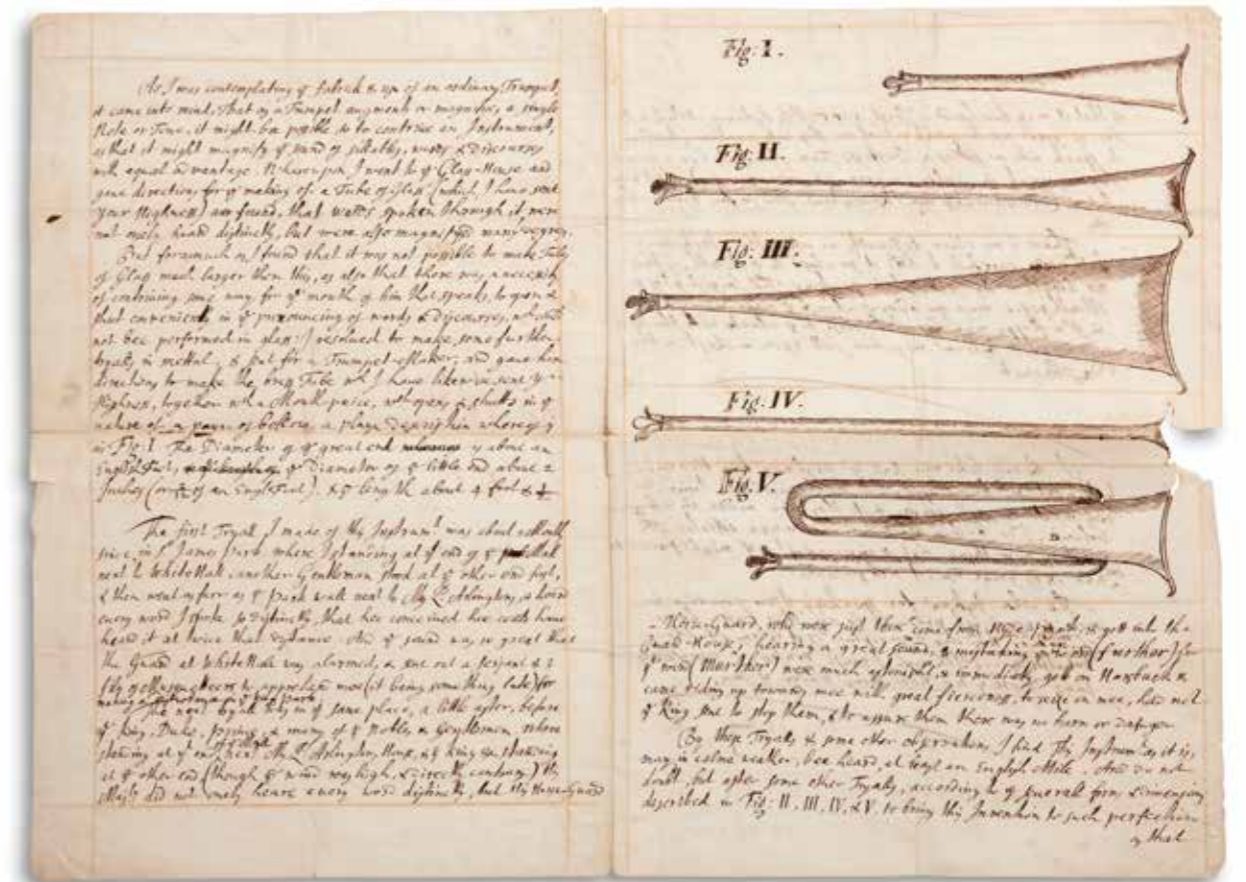 As I was contemplating ye fabrick & use of an ordinary Trumpet,
it came into mind, That as a Trumpet augments or magnifies, a single
Note or Tone, it might bee possible so to contrive an Instrument,
as that it might magnify ye sound of words & Discourses
with equal advantage. Whereupon I went to ye Glass-House and
gave directions for ye making of a Tube of Glass (which I have sent
your Highness) and found, that words spoken through it, were
not onely heard distinctly, but were also magnifyed many degrees.
But forasmuch as I found that it was not possible to make Tubes
of Glass much larger then this, as also that there was a necessity
of contriving some way for ye mouth of him that speaks, to open &
shut conveniently in ye pronouncing of words & Discourses, wch could
not bee performed in glass; I resolved to make some further
tryals in mettal, & sent for a Trumpet-Maker, and gave him
directions to make the brass Tube wch I have likewise sent yr
Highness, together with a Mouth peice, wch opens & shutts in ye
nature of a payr of bellows, a plaine Description whereof is
in Fig: I. The Diameter of ye great end is about an
English Foot, ye Diameter of ye little end about 2
Inches (or of an English Foot). & ye length about 4 foot &
The first Tryal I made of this Instrumt was about a Month
since, in St James Park where I standing at ye end of ye Mall
next to WhiteHall, another Gentleman stood at ye other end first,
& then went as farr as ye Park wall next to My Ld Arlingtons, & heard
every word I spoke, so distinctly, that hee conceived hee could have
heard it at twice that distance. And ye sound was so great that
the Guard at WhiteHall was alarmed, & sent out a serjeant & 2
fyles of Musqueteers to apprehend mee (it being something late) for
making a disturbance in ye park
The next tryall was in ye same place, a little after, before
ye King, Duke, & many of ye Nobles & Gentlemen, where
standing at ye end of ye Mall next My Ld Arlingtons House, & ye King standing
at ye other end (though ye wind was high, & directly contrary) his
Majty did not onely heare every word distinctly, but his Horse-Guard
Fig: I.
Fig: II.
Fig: III.
Fig: IV.
Fig: V.
-Horse-Guard, who were just then come from & gott into the
Guard-House, hearing a great sound, & mistaking (further) for
ye word (Murther) were much astonisht, & immediatly got on Horsback &
came riding up towards mee with great fierceness, to seize on mee, had not
ye King sent to stop them, & to assure them there was no harm or danger.
By these Tryals & some other observations, I find this Instrumt as it is,
may in calme weather, bee heard at least an English Mile. And do not
doubt, but after some other Tryals, according to ye severall forms & dimensions
described in Fig: II. III. IV. & V. to bring this Invention to such perfection
as that